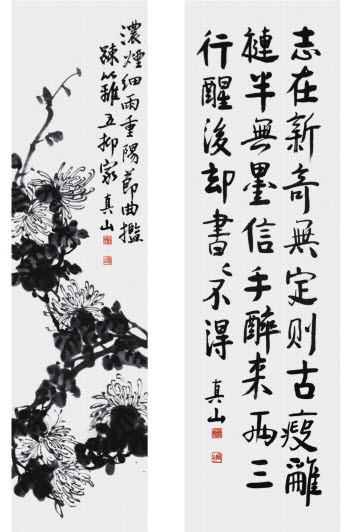 志在新奇無定则古瘦離
褷半無墨信手醉来兩三
行醒後却書〻不得
真山
濃煙細雨重陽節曲檻
疎籬五柳家真山